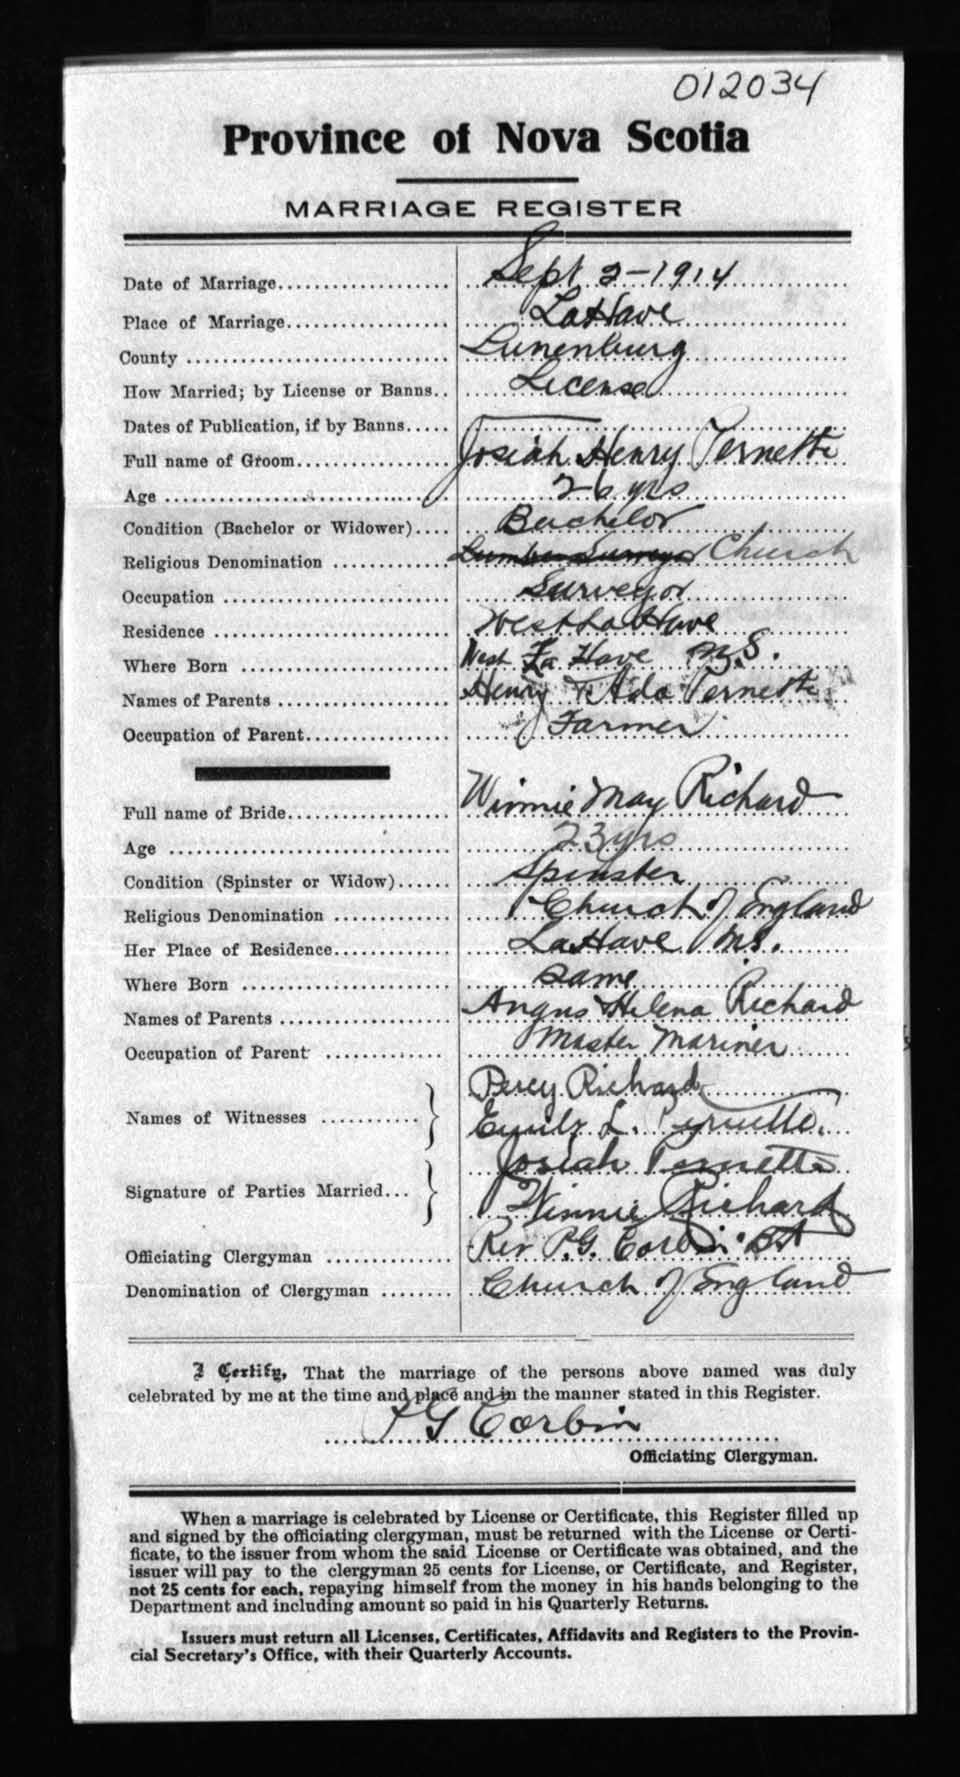 012034
Province of Nova Scotia
MARRIAGE REGISTER
Date of Marriage Sept 2-1914
Place of Marriage LaHave
County Lunenburg
How Married; by License or Banns License
Dates of Publication, if by Banns —
Full name of Groom Josiah Henry Pernette
Age 26 yrs
Condition (Bachelor or Widower) Bachelor
Religious Denomination Lumber Surveyor Church
Occupation Surveyor
Residence West LaHave
Where Born West La Have N.S.
Names of Parents Henry & Ada Pernette
Occupation of Parent Farmer
Full name of Bride Winnie May Richard
Age 23 yrs
Condition (Spinster or Widow) Spinster
Religious Denomination Church of England
Her Place of Residence LaHave N.S.
Where Born same
Names of Parents Angus Helena Richard
Occupation of Parent Master Mariner
Names of Witnesses Percy Richard
Emily L. Pernette.
Signature of Parties Married Josiah Pernette
Winnie Richard
Officiating Clergyman Rev P.G. Corbin
Denomination of Clergyman Church of England
I Certify, That the marriage of the persons above named was duly
celebrated by me at the time and place and in the manner stated in this Register.
P G Corbin
Officiating Clergyman.
When a marriage is celebrated by License or Certificate, this Register filled up
and signed by the officiating clergyman, must be returned with the License or Certi-
ficate, to the issuer from whom the said License or Certificate was obtained, and the
issuer will pay to the clergyman 25 cents for License, or Certificate, and Register,
not 25 cents for each, repaying himself from the money in his hands belonging to the
Department and including amount so paid in his Quarterly Returns.
Issuers must return all Licenses, Certificates, Affidavits and Registers to the Provin-
cial Secretary's Office, with their Quarterly Accounts.